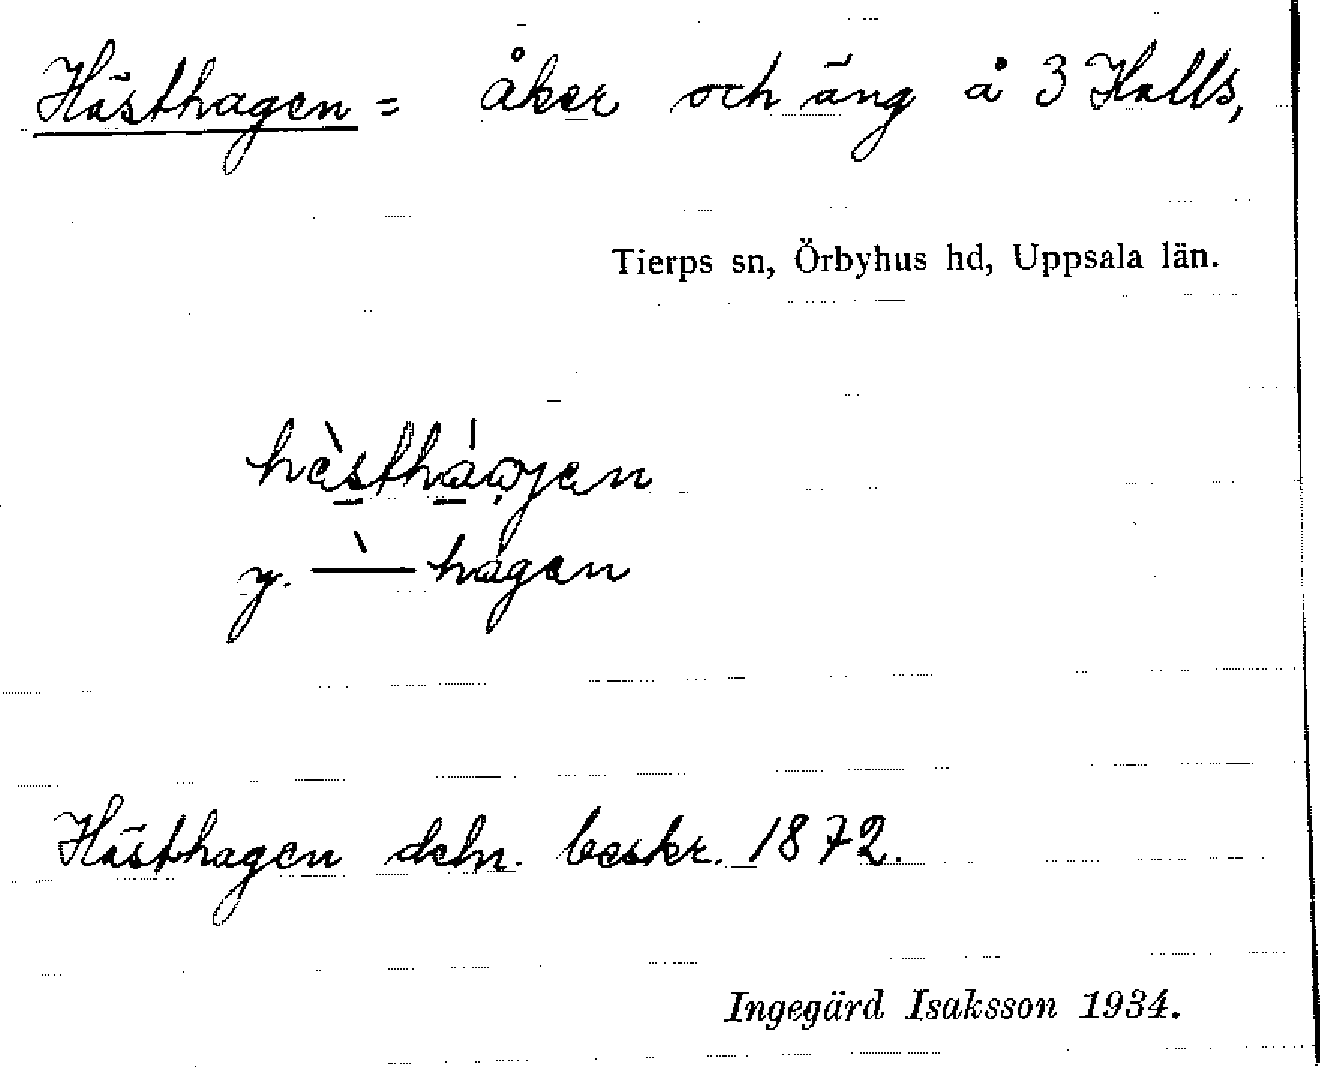 Hästhagen = åker och äng å 3 Halls,
Tierps sn, Örbyhus hd, Uppsala län.
y. —̀ hagen
Hästhagen deln. beskr. 1872.
Ingegärd Isaksson 1934.